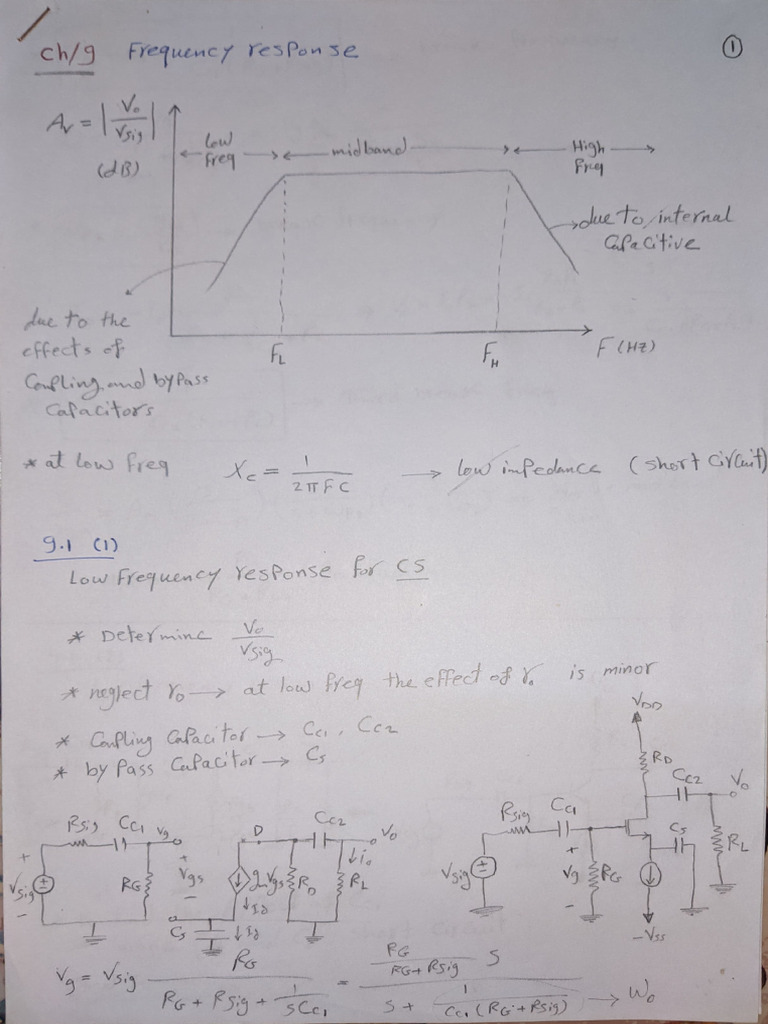 ch/9 Frequency response
①
Av = |Vo/Vsig|
(dB)
Low freq
midband
High Freq
due to internal
Capacitive
due to the
effects of
Coupling and by pass
Capacitors
FL
FH
F (HZ)
* at low freq Xc = 1/2πFC → low impedance (short circuit)
9.1 (1)
Low Frequency response for CS
* Determine Vo/Vsig
* neglect ro → at low freq the effect of ro is minor
* Coupling Capacitor → Cc1, Cc2
* by Pass Capacitor → Cs
VDD
RD
Cc2
Vo
Rsig
Cc1
Cs
RL
Vsig
+
Vg
-
RG
-VSS
Rsig Cc1 Vg
+
Vsig
-
RG
+
Vgs
-
D
gmVgs
RD
Cc2
Vo
io
RL
Id
Cs
Id
Vg = Vsig RG/(RG + Rsig + 1/sCc1) = (RG/(RG + Rsig) S)/(S + 1/(Cc1 (RG + Rsig))) → Wo